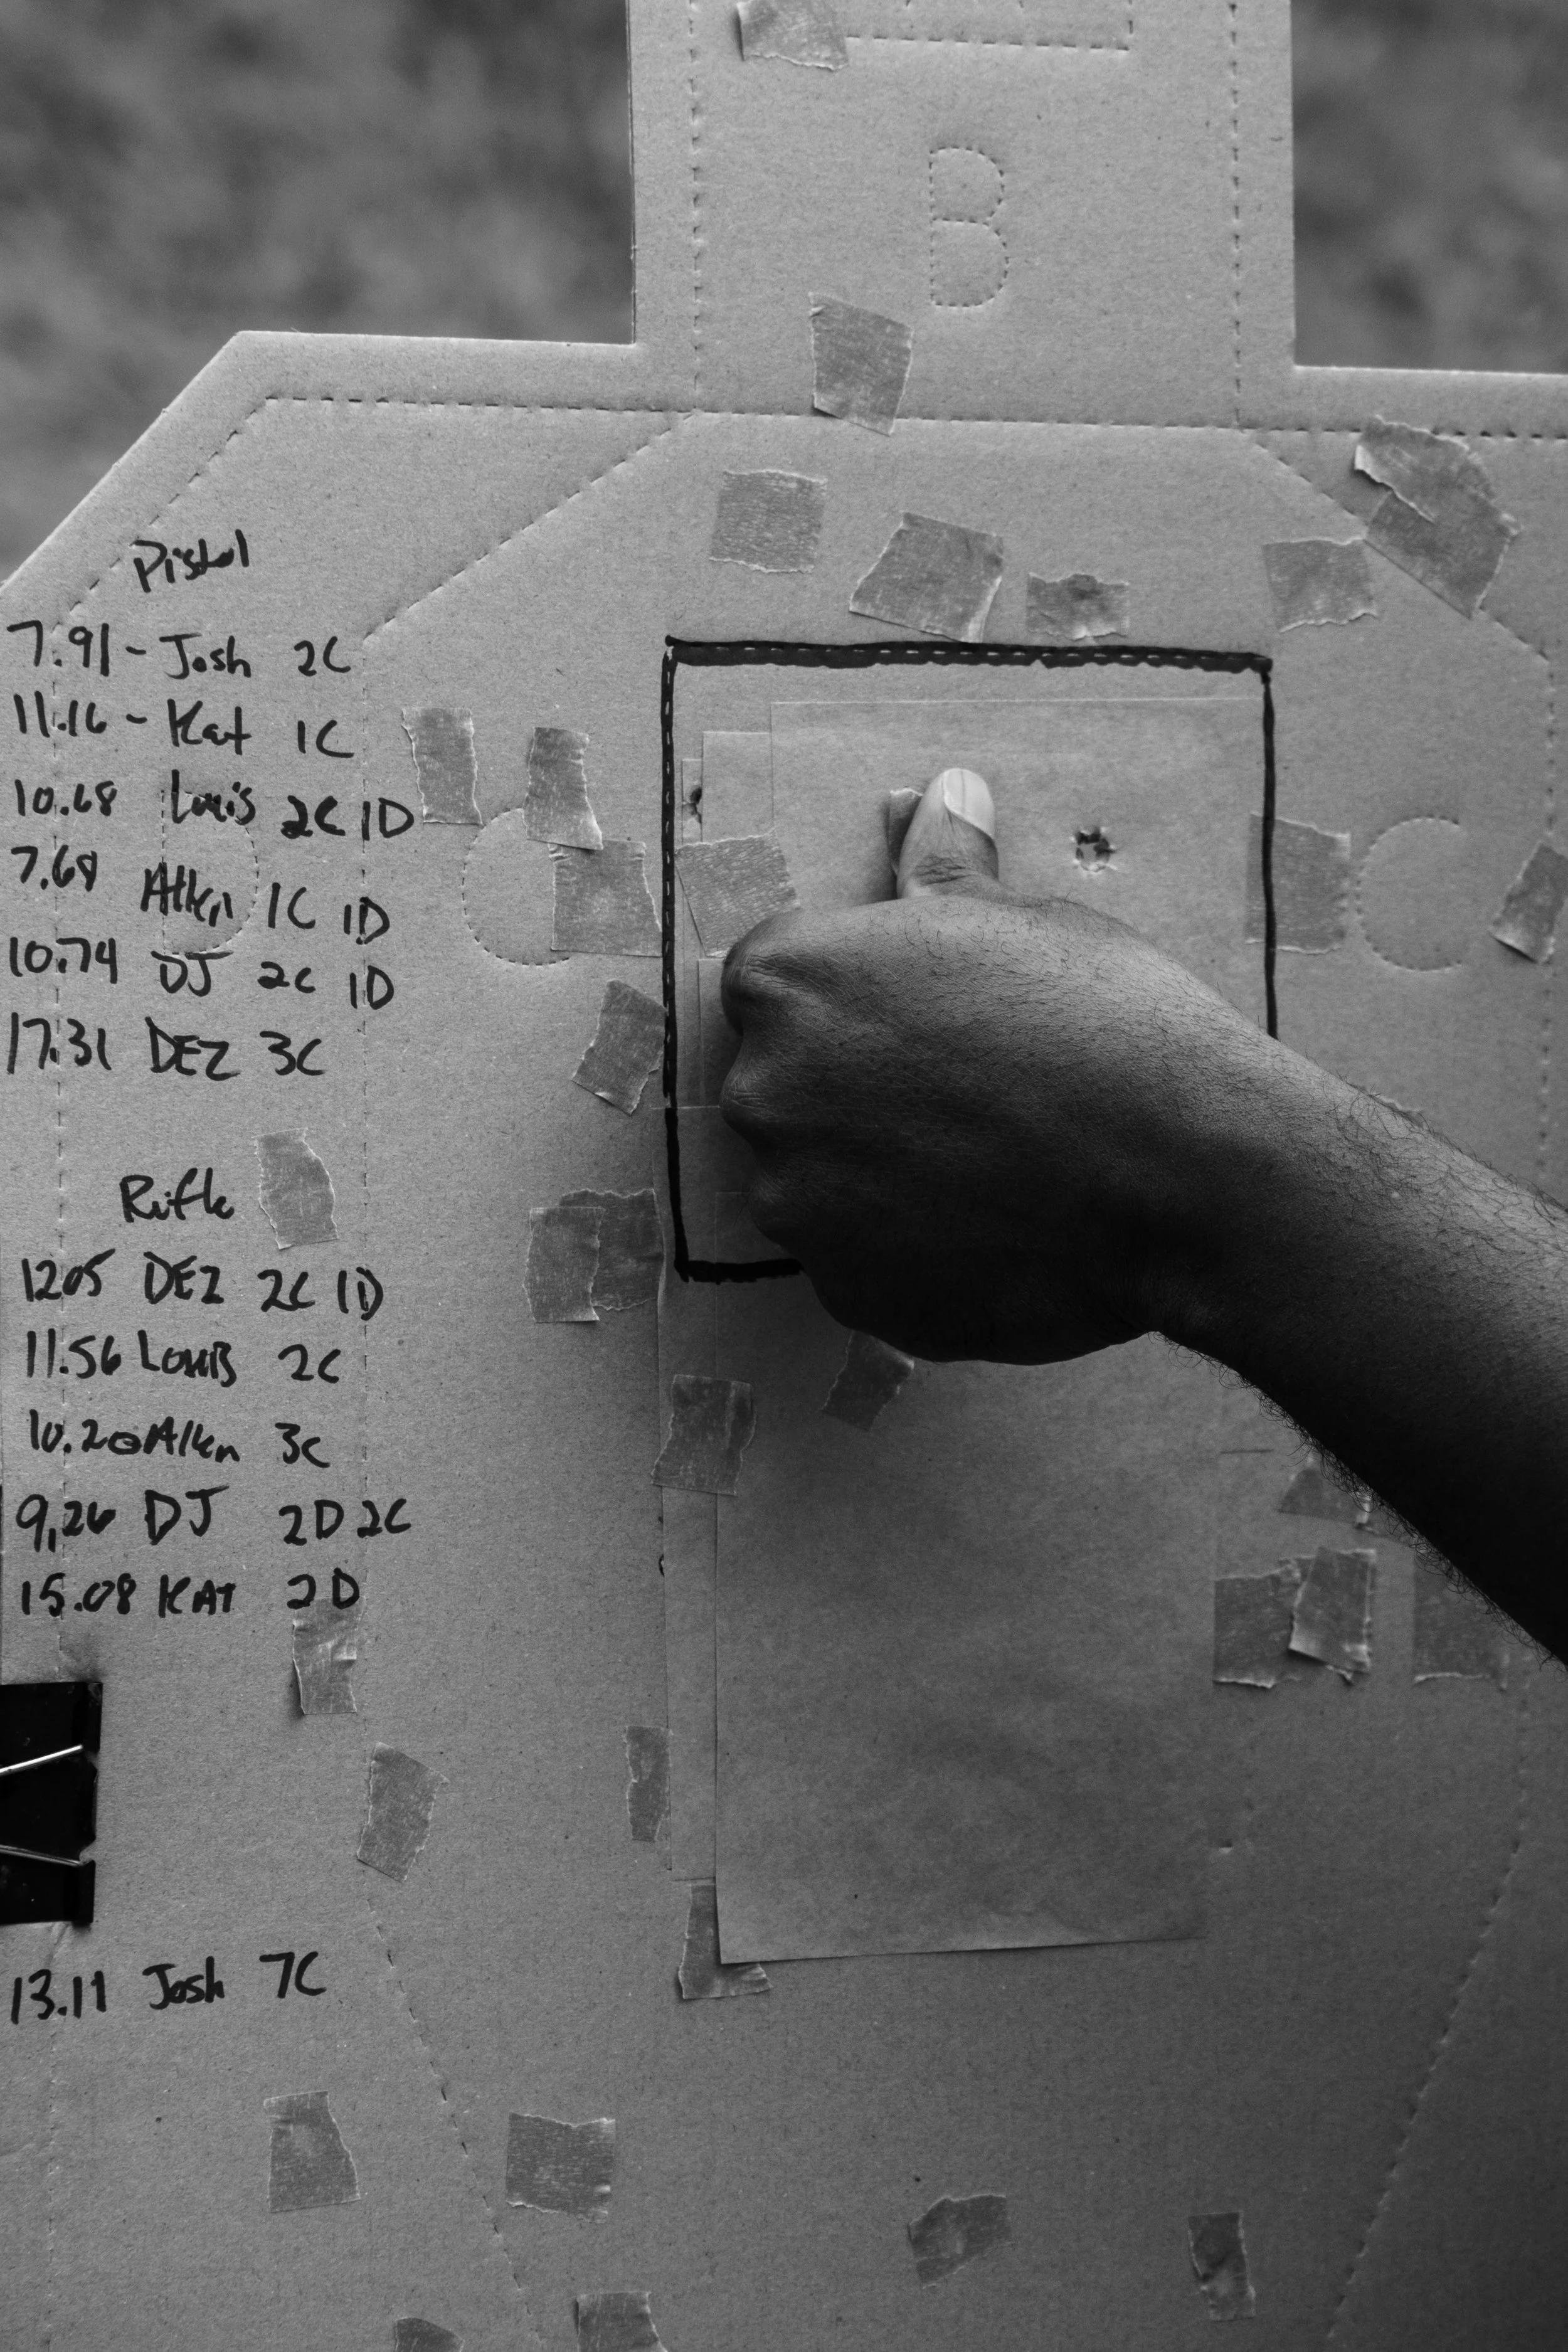 B
Pistol
7.91 - Josh 2C
11.16 - Kat 1C
10.68 Louis 2C 1D
7.68 Allen 1C 1D
10.74 DJ 2C 1D
17.31 DEZ 3C
Rifle
12.05 DEZ 2C 1D
11.56 Louis 2C
10.20 Allen 3C
9.26 DJ 2D 2C
15.08 KAT 2D
13.11 Josh 7C